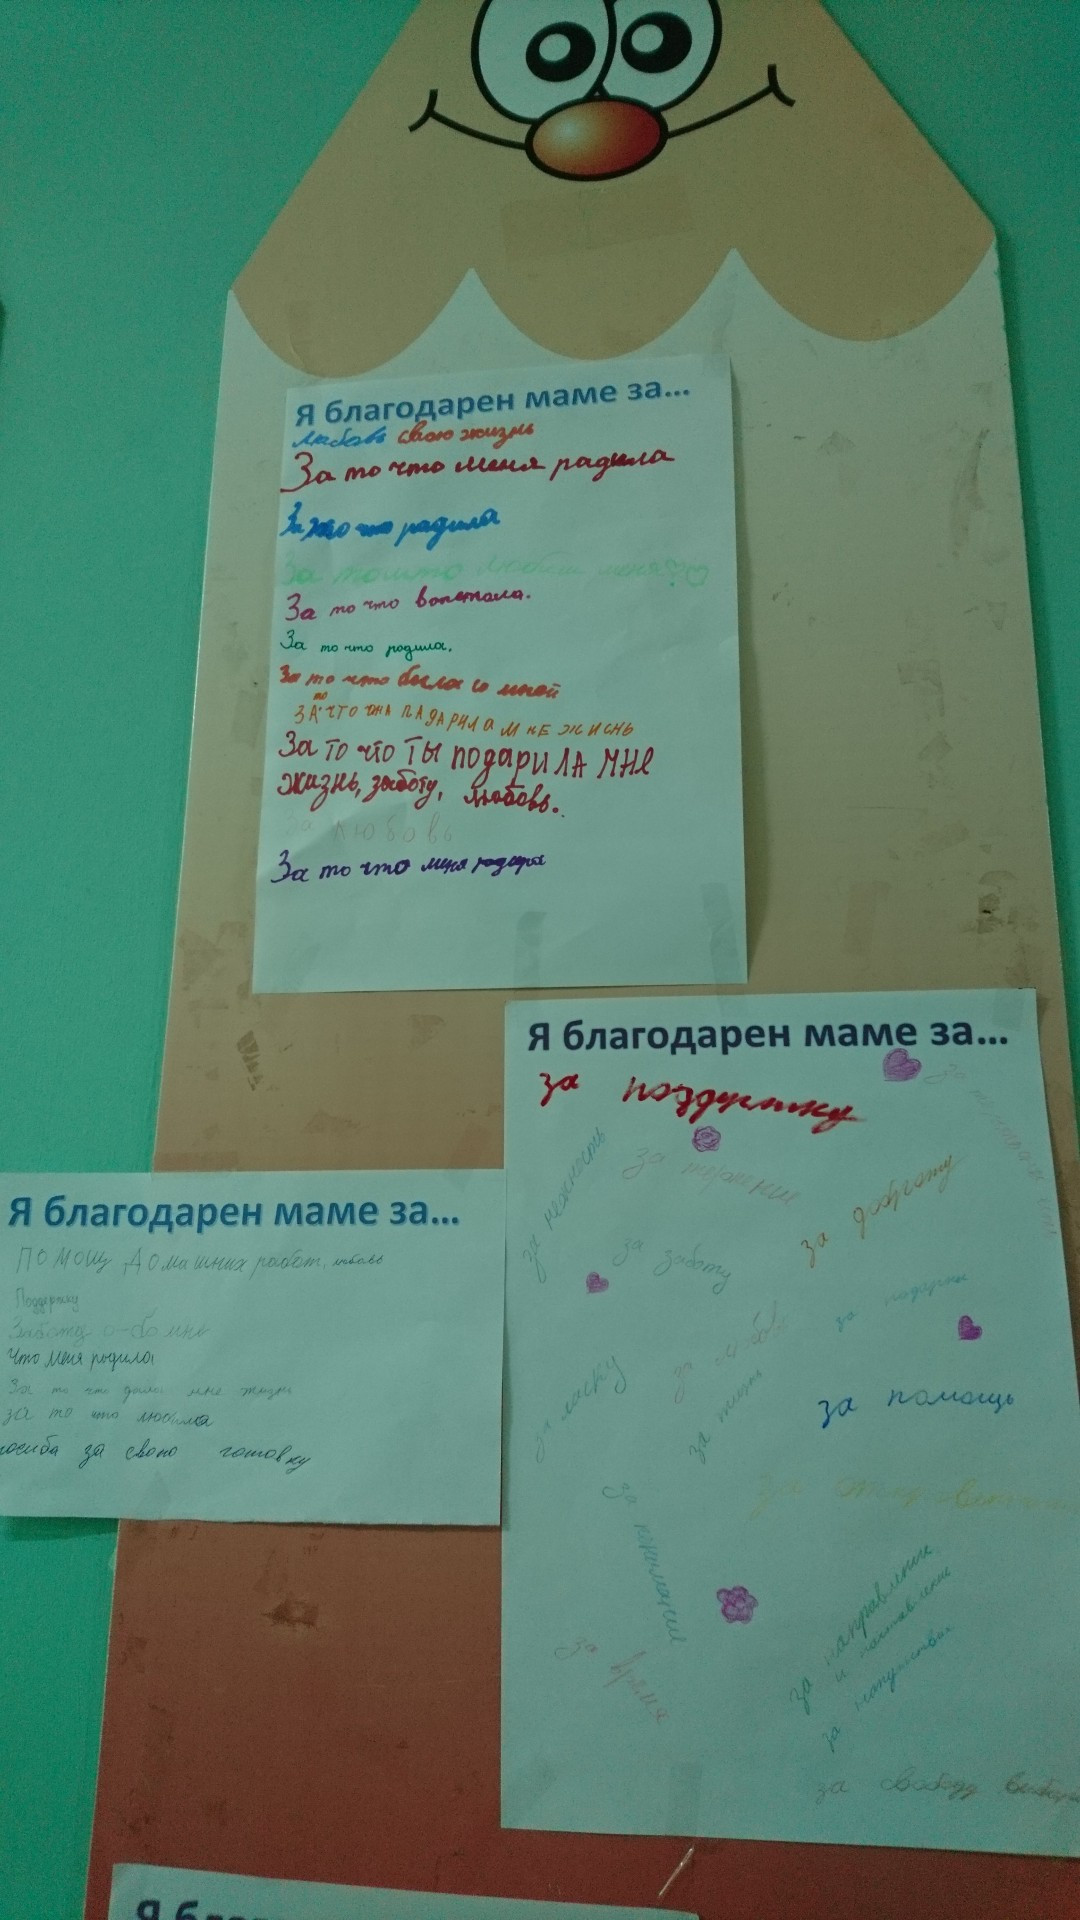 Я благодарен маме за...
любовь свою жизнь
За то что меня радила
радила
За то что любит меня
За то что вопетала.
За то что родила.
За то что была со мной
ЗА то ЧТО ОНА ПАДАРИЛА МНЕ ЖИСНЬ
За ТО что ТЫ подарила МНЕ
жизнь, заботу, любовь..
За любовь
За то что меня
Я благодарен маме за...
ПОМОЩ Домашних работ, любовь
Поддержку
Заботу о-бо мне
Что меня родила
За то что дала мне жизнь
за то что любила
за свою готовку
Я благодарен маме за...
за поддержку
за нежность
за терпение
за доброту
за заботу
за подарки
за любовь
за ласку
за жизнь
за помощь
за
за понимание
за направление
и наставление
за напутствия
за время
за свободу
Я